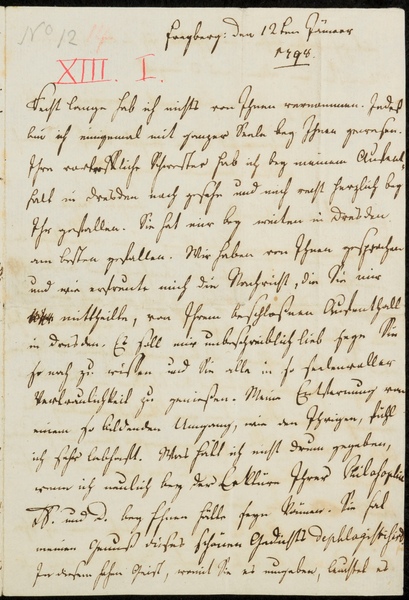 No 12
XIII. I.
Freyberg: den 12ten Jänner
1798.
Recht lange hab ich nichts von Ihnen vernommen. Indeß
bin ich einigemal mit ganzer Seele bey Ihnen gewesen.
Ihre vortreffliche Schwester hab ich bey meinem Aufent
halt in Dresden noch gesehn und noch recht herzlich bey
Ihr gefallen. Sie hat mir bey weiten in Dresden
am besten gefallen. Wir haben von Ihnen gesprochen
und wie erfreute mich die Nachricht, die Sie mir
mittheilte, von Ihrem beschloßnen Aufenthalt
in Dresden. Es soll mir unbeschreiblich lieb seyn Sie
so nah zu wissen und Sie alle in so seelenvoller
Vertraulichkeit zu genießen. Meine Entfernung von
einem so bildenden Umgang, wie den Ihrigen, fühl
ich sehr lebhaft. Was hätt ich nicht drum gegeben,
wenn ich neulich bey der Lektüre Ihrer Philosophie
und d. bey Ihnen hätte seyn können. Sie hat
meinen Genuß dieses schönen Gedichts dephlogistisirt.
In diesem hohen Geist, womit Sie es umgeben, leuchtet es